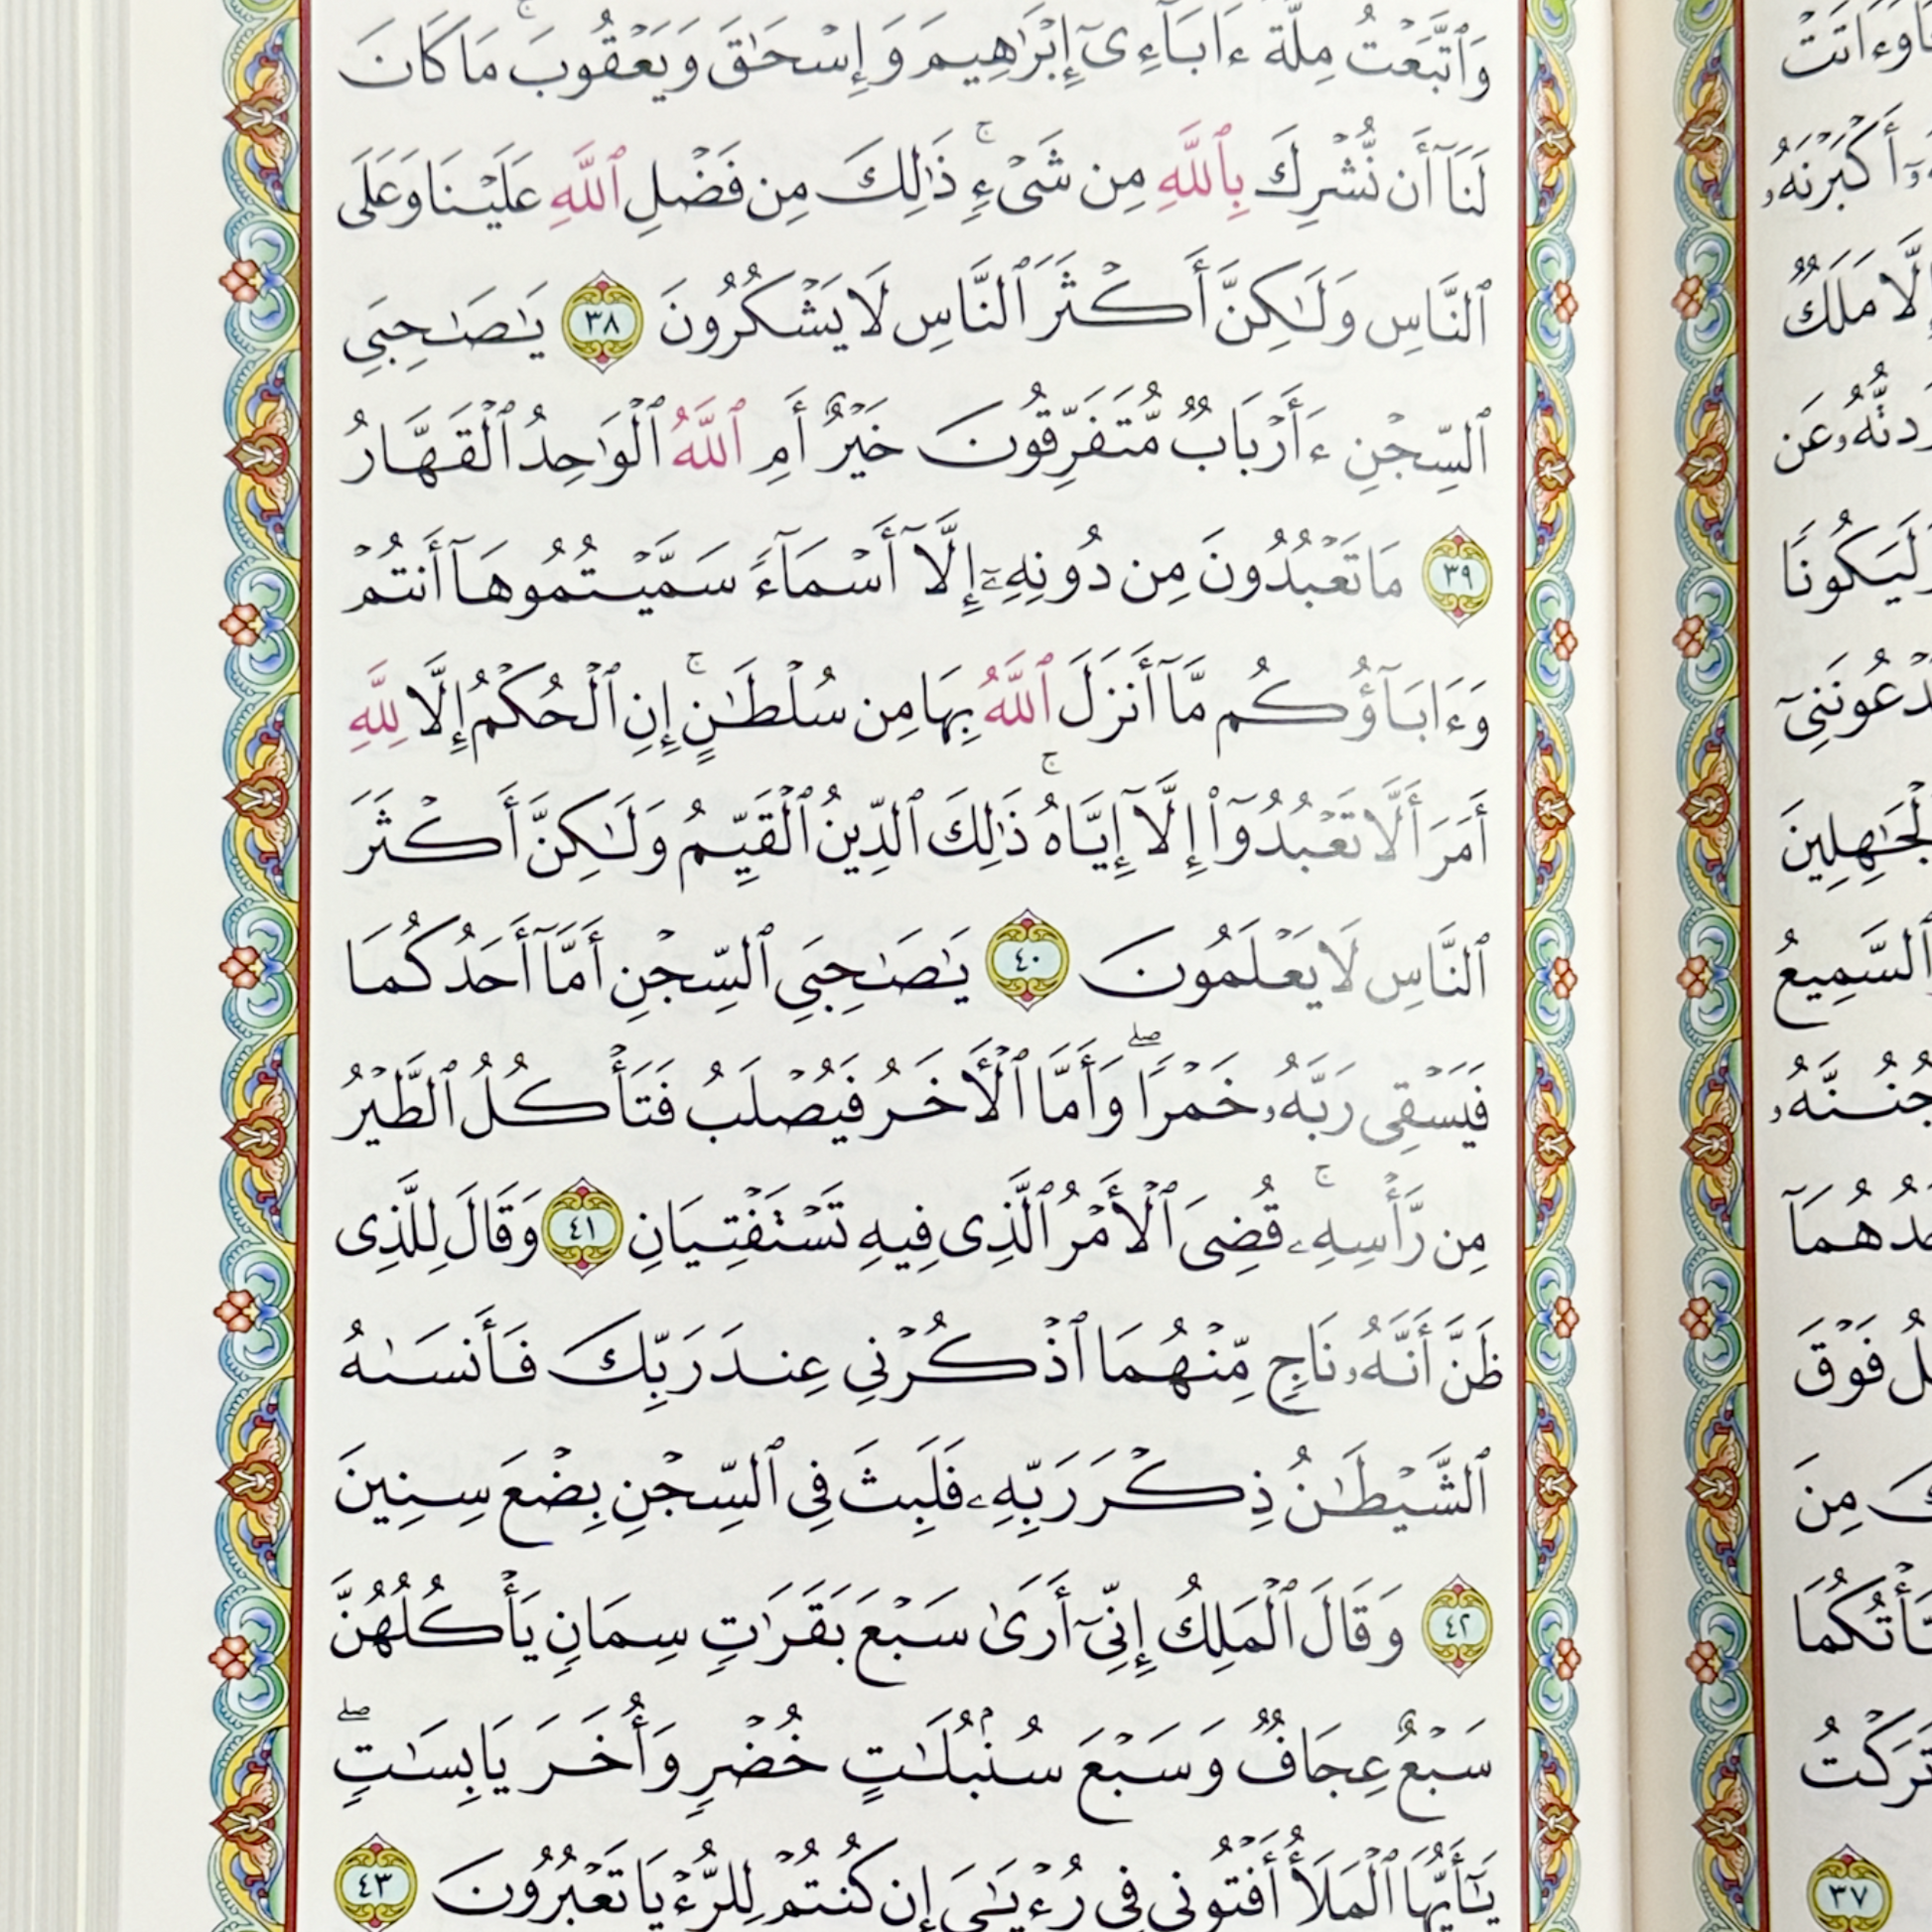 وَٱتَّبَعْتُ مِلَّةَ ءَابَآءِىٓ إِبْرَٰهِيمَ وَإِسْحَٰقَ وَيَعْقُوبَ ۚ مَا كَانَ
لَنَآ أَن نُّشْرِكَ بِٱللَّهِ مِن شَىْءٍ ۚ ذَٰلِكَ مِن فَضْلِ ٱللَّهِ عَلَيْنَا وَعَلَى
ٱلنَّاسِ وَلَٰكِنَّ أَكْثَرَ ٱلنَّاسِ لَا يَشْكُرُونَ ٣٨ يَٰصَٰحِبَىِ
ٱلسِّجْنِ ءَأَرْبَابٌ مُّتَفَرِّقُونَ خَيْرٌ أَمِ ٱللَّهُ ٱلْوَٰحِدُ ٱلْقَهَّارُ
٣٩ مَا تَعْبُدُونَ مِن دُونِهِۦٓ إِلَّآ أَسْمَآءً سَمَّيْتُمُوهَآ أَنتُمْ
وَءَابَآؤُكُم مَّآ أَنزَلَ ٱللَّهُ بِهَا مِن سُلْطَٰنٍ ۚ إِنِ ٱلْحُكْمُ إِلَّا لِلَّهِ
أَمَرَ أَلَّا تَعْبُدُوٓا۟ إِلَّآ إِيَّاهُ ۚ ذَٰلِكَ ٱلدِّينُ ٱلْقَيِّمُ وَلَٰكِنَّ أَكْثَرَ
ٱلنَّاسِ لَا يَعْلَمُونَ ٤٠ يَٰصَٰحِبَىِ ٱلسِّجْنِ أَمَّآ أَحَدُكُمَا
فَيَسْقِى رَبَّهُۥ خَمْرًا ۖ وَأَمَّا ٱلْأَخَرُ فَيُصْلَبُ فَتَأْكُلُ ٱلطَّيْرُ
مِن رَّأْسِهِۦ ۚ قُضِىَ ٱلْأَمْرُ ٱلَّذِى فِيهِ تَسْتَفْتِيَانِ ٤١ وَقَالَ لِلَّذِى
ظَنَّ أَنَّهُۥ نَاجٍ مِّنْهُمَا ٱذْكُرْنِى عِندَ رَبِّكَ فَأَنسَىٰهُ
ٱلشَّيْطَٰنُ ذِكْرَ رَبِّهِۦ فَلَبِثَ فِى ٱلسِّجْنِ بِضْعَ سِنِينَ
٤٢ وَقَالَ ٱلْمَلِكُ إِنِّىٓ أَرَىٰ سَبْعَ بَقَرَٰتٍ سِمَانٍ يَأْكُلُهُنَّ
سَبْعٌ عِجَافٌ وَسَبْعَ سُنۢبُلَٰتٍ خُضْرٍ وَأُخَرَ يَابِسَٰتٍ ۖ
يَٰٓأَيُّهَا ٱلْمَلَأُ أَفْتُونِى فِى رُءْيَٰىَ إِن كُنتُمْ لِلرُّءْيَا تَعْبُرُونَ ٤٣
أَكْبَرْنَهُۥ
مَلَكٌ
عَن
لَيَكُونًا
ٱلسَّمِيعُ
فَوْقَ
مِنَ
تَرَكْتُ
٣٧